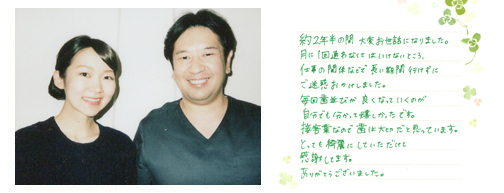 約2年半の間 大変お世話になりました。
月に1回通わなくてはいけないところ、
仕事の関係などで長い期間行けずに
ご迷惑おかけしました。
毎回歯並びが良くなっていくのが
自分でも分かって嬉しかったです。
接客業なので歯は大切だと思っています。
とっても綺麗にしていただけて
感謝してます。
ありがとうございました。